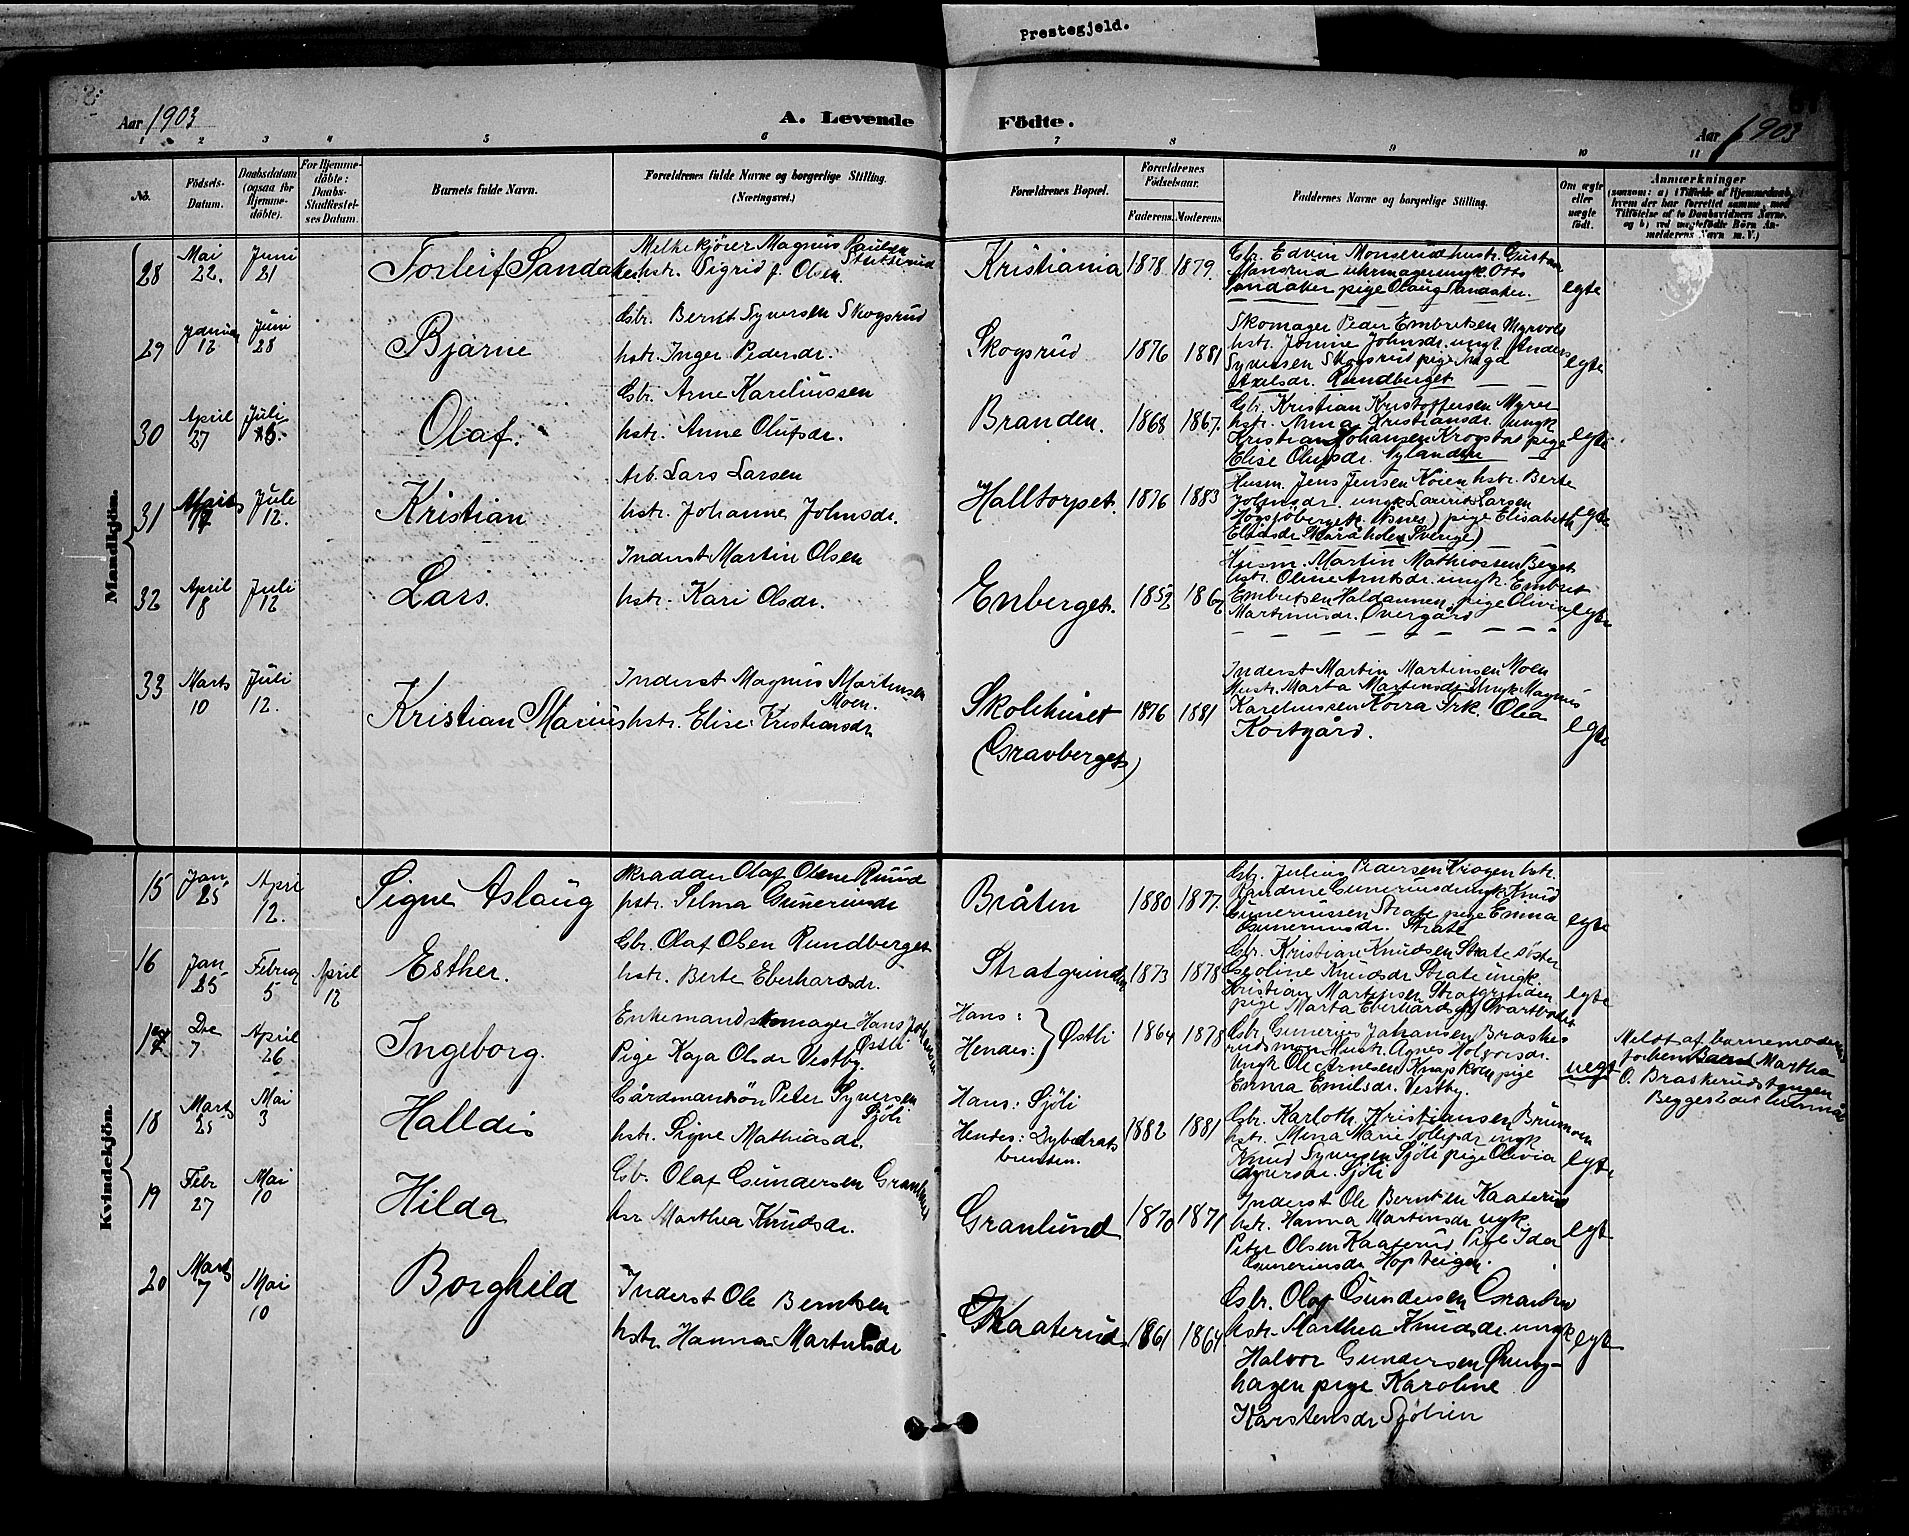 Prestegjeld.
Aar 1903
A. Levende Födte.
Aar 1903
1 2 3 4 5 6 7 8 9 10 11
No.
Födsels-Datum.
Daabsdatum (ogsaa for Hjemme-döbte).
For Hjemme-döbte: Daabs-Stadfæstel-ses Datum.
Barnets fulde Navn.
Forældrenes fulde Navne og borgerlige Stilling. (Næringsvei.)
Forældrenes Bopæl.
Forældrenes Födselsaar.
Faderens. Moderens.
Faddernes Navne og borgerlige Stilling.
Om ægte eller uægte födt.
Anmærkninger
(saasom: a) i Tilfælde af Hjemmedaab, hvem der har forrettet samme, med Tilföielse af to Daabsvidners Navne, og b) ved uægtefödte Börn An-melderens Navn m. V.)
Mandkjön.
28 Mai 22. Juni 21 Torleif Sandaker
Melkekjörer Magnus Paulsen
hstr. Sigrid f. Olsen.
Kristiania 1878. 1879.
Gbr. Edvin Monserud hustr.
uhrmager ungk. Otto
Sandaker pige Olaug Sandaker. egte
29 12 Juni 28 Bjarne
Gbr. Bernt Syversen Skogsrud
hstr. Inger Pedersdr.
Skogsrud 1876 1881
Skomager Peder Embretsen Myrvold
hstr. Jonine Johnsdr. ungk Anders
Syversen Skogsrud pige Inga
Axelsdr. Rundberget egte
30 April 27 Juli Olaf.
Gbr. Arne Kareliussen
hstr. Anne Olufsdr.
Branden. 1868 1867.
Gbr. Kristian Kristoffersen Myrer
hstr. Anna Kristiansdr. ungk
Kristian Johansen Krogstad pige
Elise Olufsdr. Nylanden egte
31 Juli 12. Kristian
Arb. Lars Larsen
hstr. Johanne Johnsdr.
Halltorpet. 1876 1883
Husm. Jens Jensen Koien hstr. Berte
Johnsdr. ungk Laurits Larsen
pige Elisabeth
Sverige) egte
32 April 8 Juli 12 Lars.
Inderst Martin Olsen
hstr. Kari Olsdr.
Enberget. 1852
Husm. Martin Mathiassen Berget
hstr. Oline Arntsdr. ungk. Embret
Embretsen Haldammen pige Olivia
Martinusdr. Overgård egte
33 Marts 10 Juli 12. Kristian Marius
Inderst Magnus Martinsen
Moen.
hstr. Elise Kristiansdr
Skolehuset
(Gravberget) 1876 1881
Inderst Martin Martinsen Moen
Hustr. Marta Martinsdr Ungk Magnus
Kareliussen Frk. Olea
Kortgård. egte
Kvindekjön.
15 Jan 25 April 12. Signe Aslaug
Skrædder Olaf Olsen Ruud
hstr. Selma Gunerusdr
Bråten 1880 1877.
Gbr. Julius Pedersen Krogen hstr.
Randine Gunerusdr ungk Knud
Gunerussen Strate pige Emma
Gunerusdr. Strate egte
16 Jan 25 Febru 5 April 12 Esther.
Gbr. Olaf Olsen Rundberget
hstr. Berte Eberhardsdr.
Stratgrinden 1873 1878
Gbr. Kristian Knudsen Strate söster
Karoline Knudsdr Strate ungk.
Kristian Martinsen Stratgrinden
pige Marta Eberhardsdr egte
17 De 7 April 26 Ingeborg.
Enkemand Skomager Hans Johansen
Östli
Pige Kaja Olsdr Vestby.
Hans:
Hendes: } Østli 1864 1878
Gbr. Gunerius Johansen Braske-
rudsmoen Hustr. Agnes Halvorsdr.
Ungk Ole Arnesen Knapskoen pige
Emma Emilsdr. Vestby. uegt
Meldt af barnemoderen
Martha
O. Braskerudstangen
18 Marts 25 Mai 3 Halldis
Gårdmandsön Peter Syversen
Sjöli
hstr. Signe Mathiasdr.
Hans: Sjöli
Hendes: 1882 1881
Gbr. Karloth Kristiansen Brumoen
hstr. Mina Marie ungk
Knud Syversen Sjöli pige Olivia
Syversdr. Sjöli egte
19 Febr 27 Mai 10 Hilda
Gbr. Olaf Gundersen Granlund
Marthea Knudsdr.
Granlund 1870 1871
Inderst Ole Berntsen Kaaterud
hstr. Hanna Martinsdr ungk
Peter Olsen Kaaterud Pige Ida
Gunerusdr Hopteigen. egte
20 Marts 7 Mai 10 Borghild
Inderst Ole Berntsen
hstr Hanna Martinsdr
Kaaterud 1861 1864.
Gbr. Olaf Gundersen Granlund
hstr. Marthea Knudsdr. ungk
Halvor Gundersen
hagen pige Karoline
Karstensdr Sjölien egte